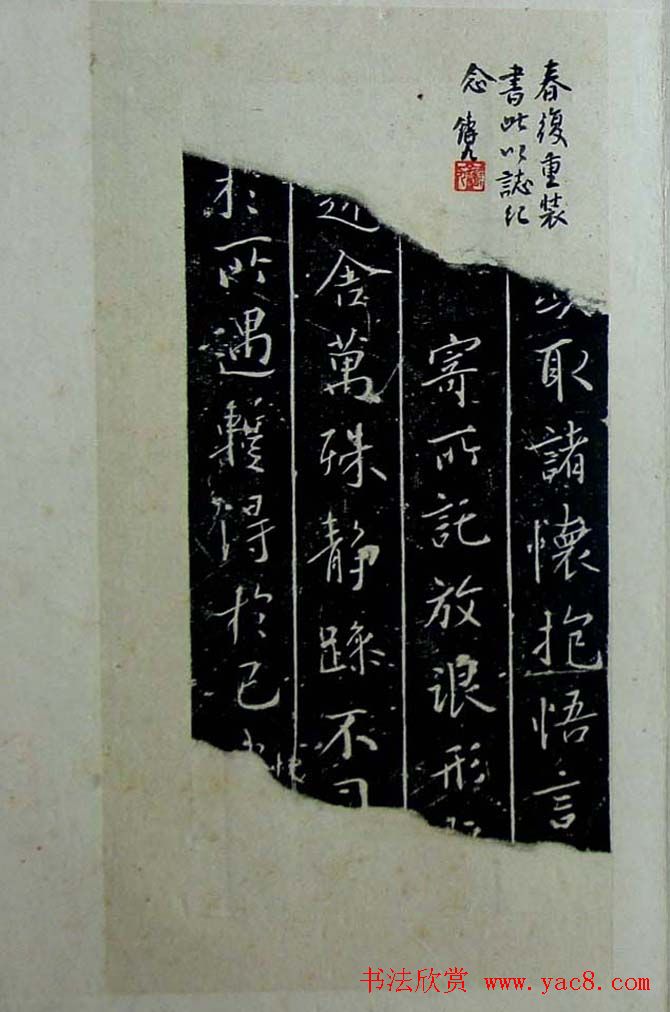 春復重裝
書此以誌紀
念
取諸懷抱悟言
寄所託放浪形
舍萬殊靜躁不
於所遇蹔得於己
书法欣赏 www.yac8.com